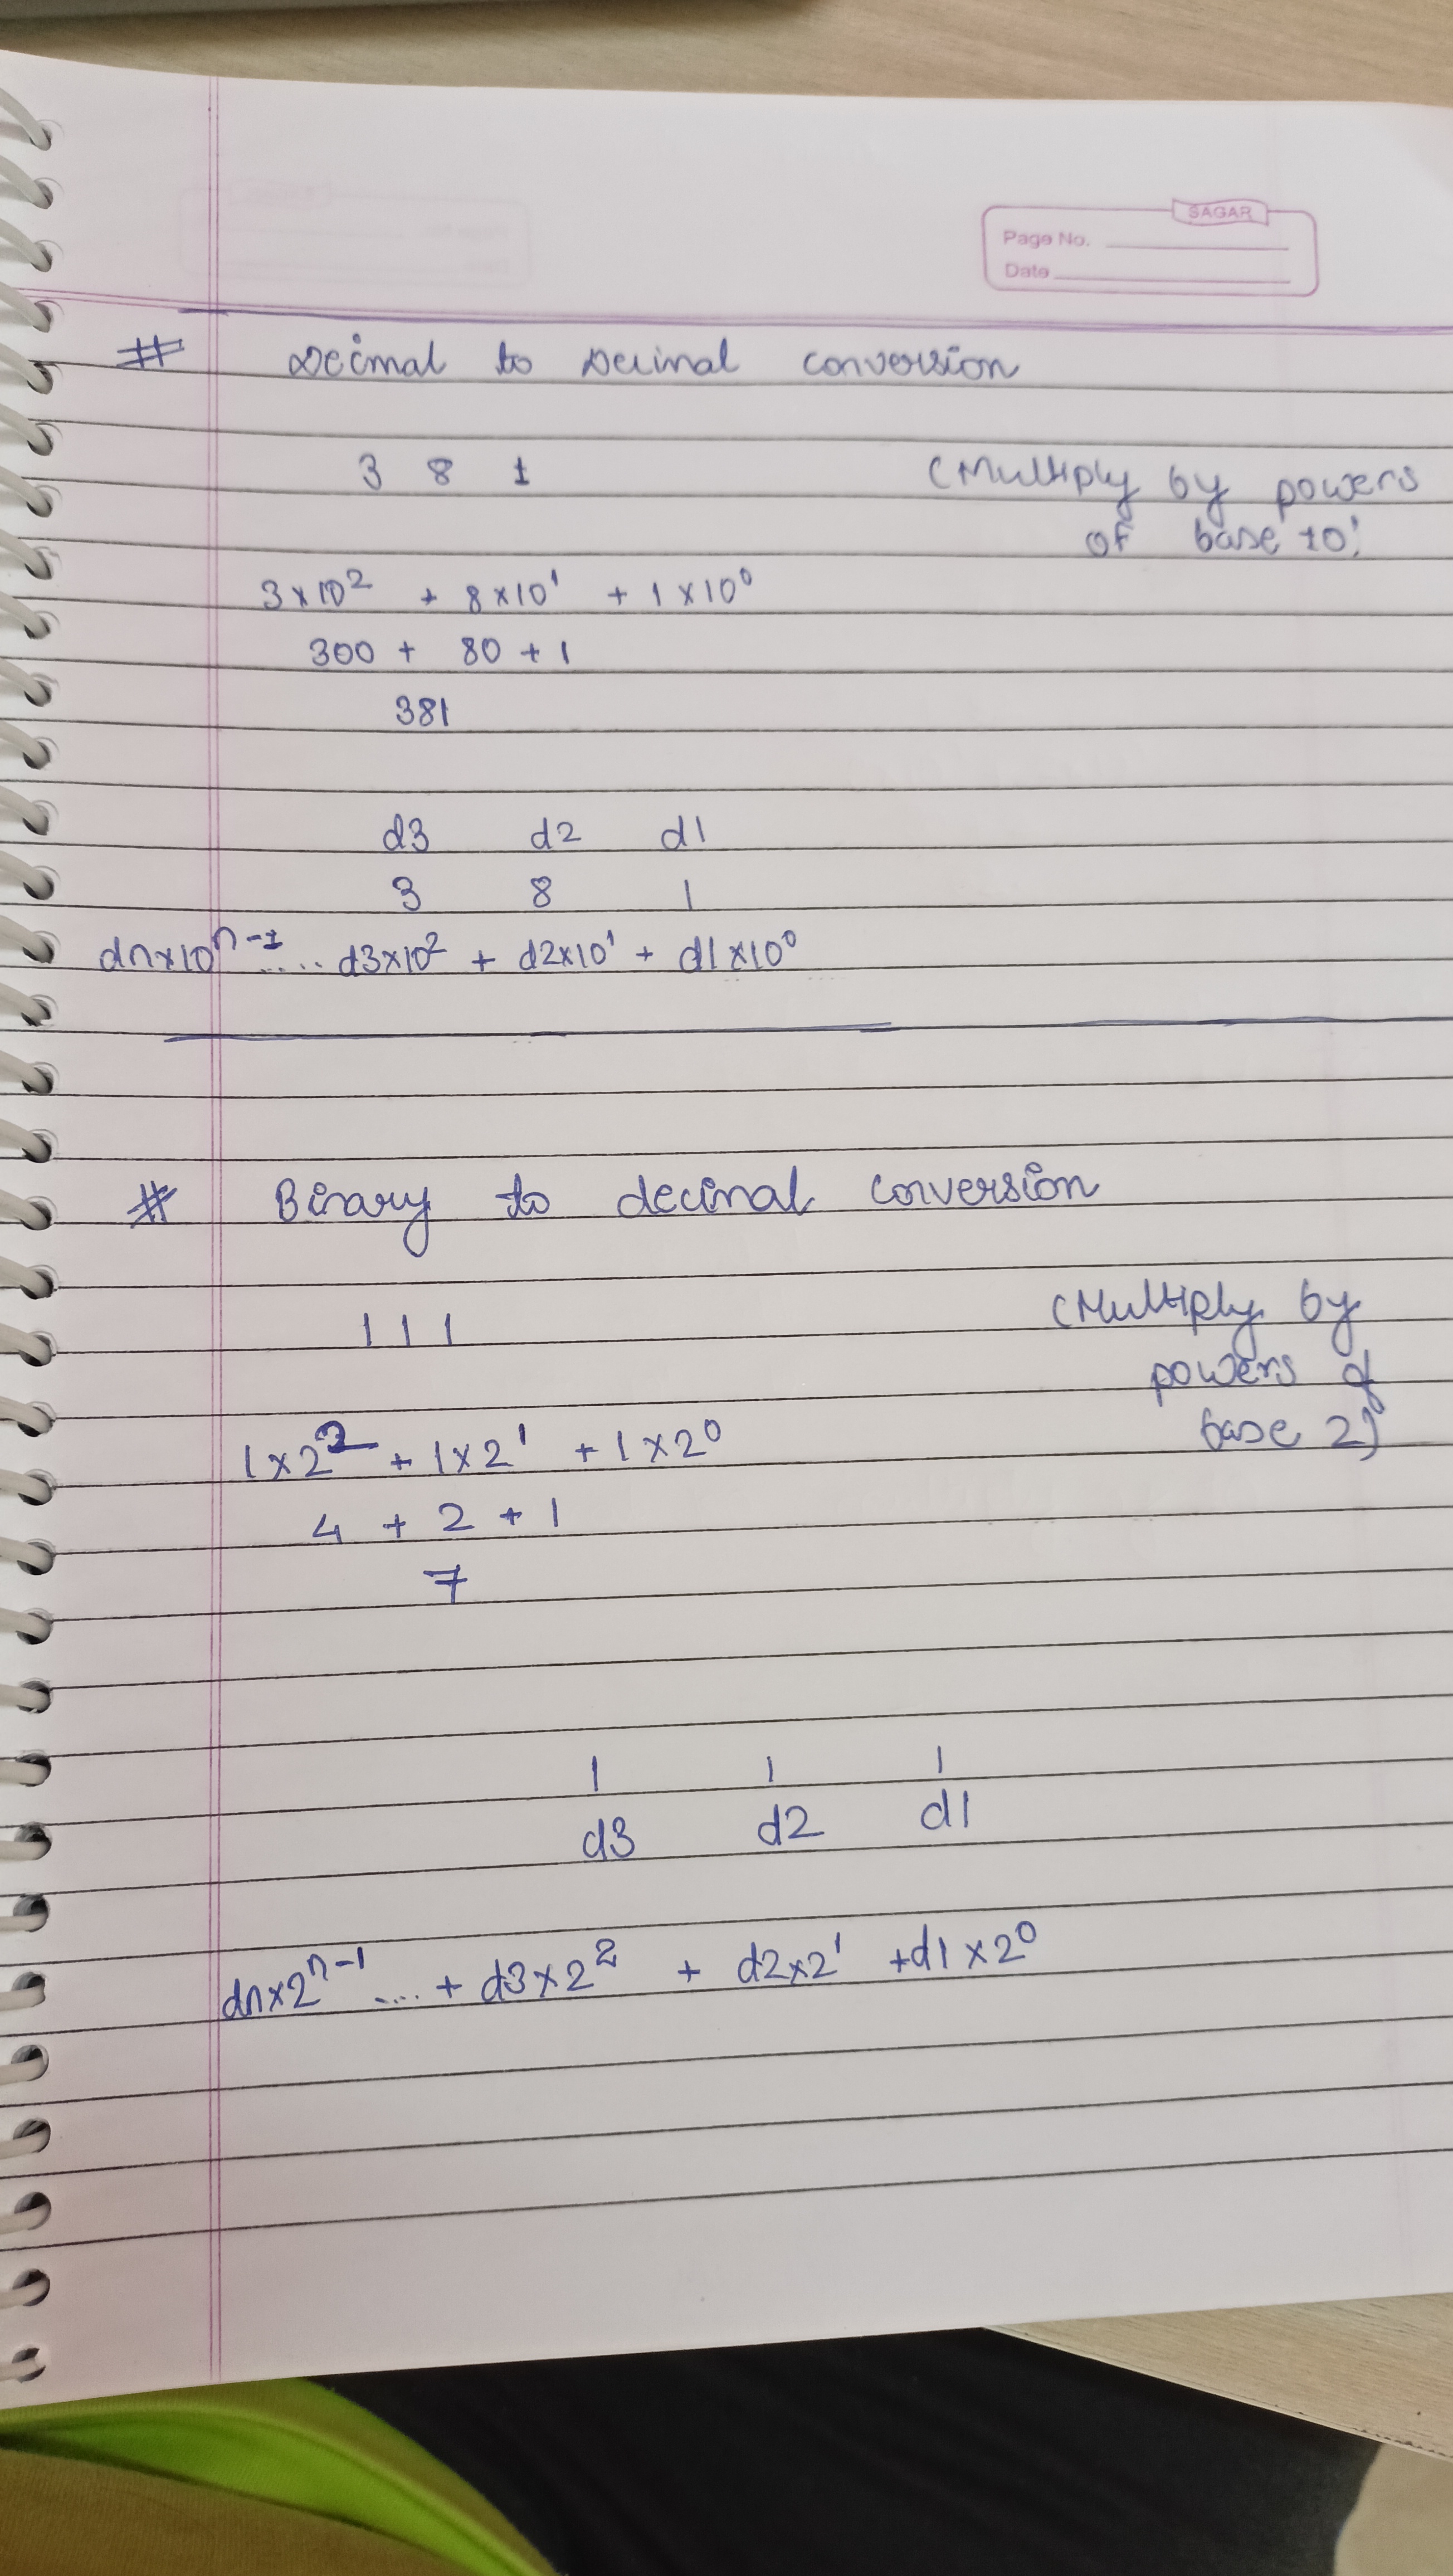 SAGAR
Page No.
Date
# Decimal to Decimal conversion
3 8 1 (Multiply by powers
of base 10)
3×10² + 8×10¹ + 1×10⁰
300 + 80 + 1
381
d3 d2 d1
3 8 1
dn×10ⁿ⁻¹ ..... d3×10² + d2×10¹ + d1×10⁰
# Binary to decimal conversion
1 1 1 (Multiply by
powers of
base 2)
1×2² + 1×2¹ + 1×2⁰
4 + 2 + 1
7
1 1 1
d3 d2 d1
dn×2ⁿ⁻¹ .... + d3×2² + d2×2¹ + d1×2⁰